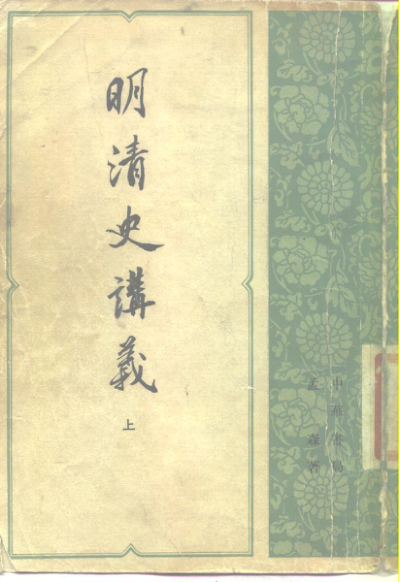 明清史講義
上
孟森著
中華書局